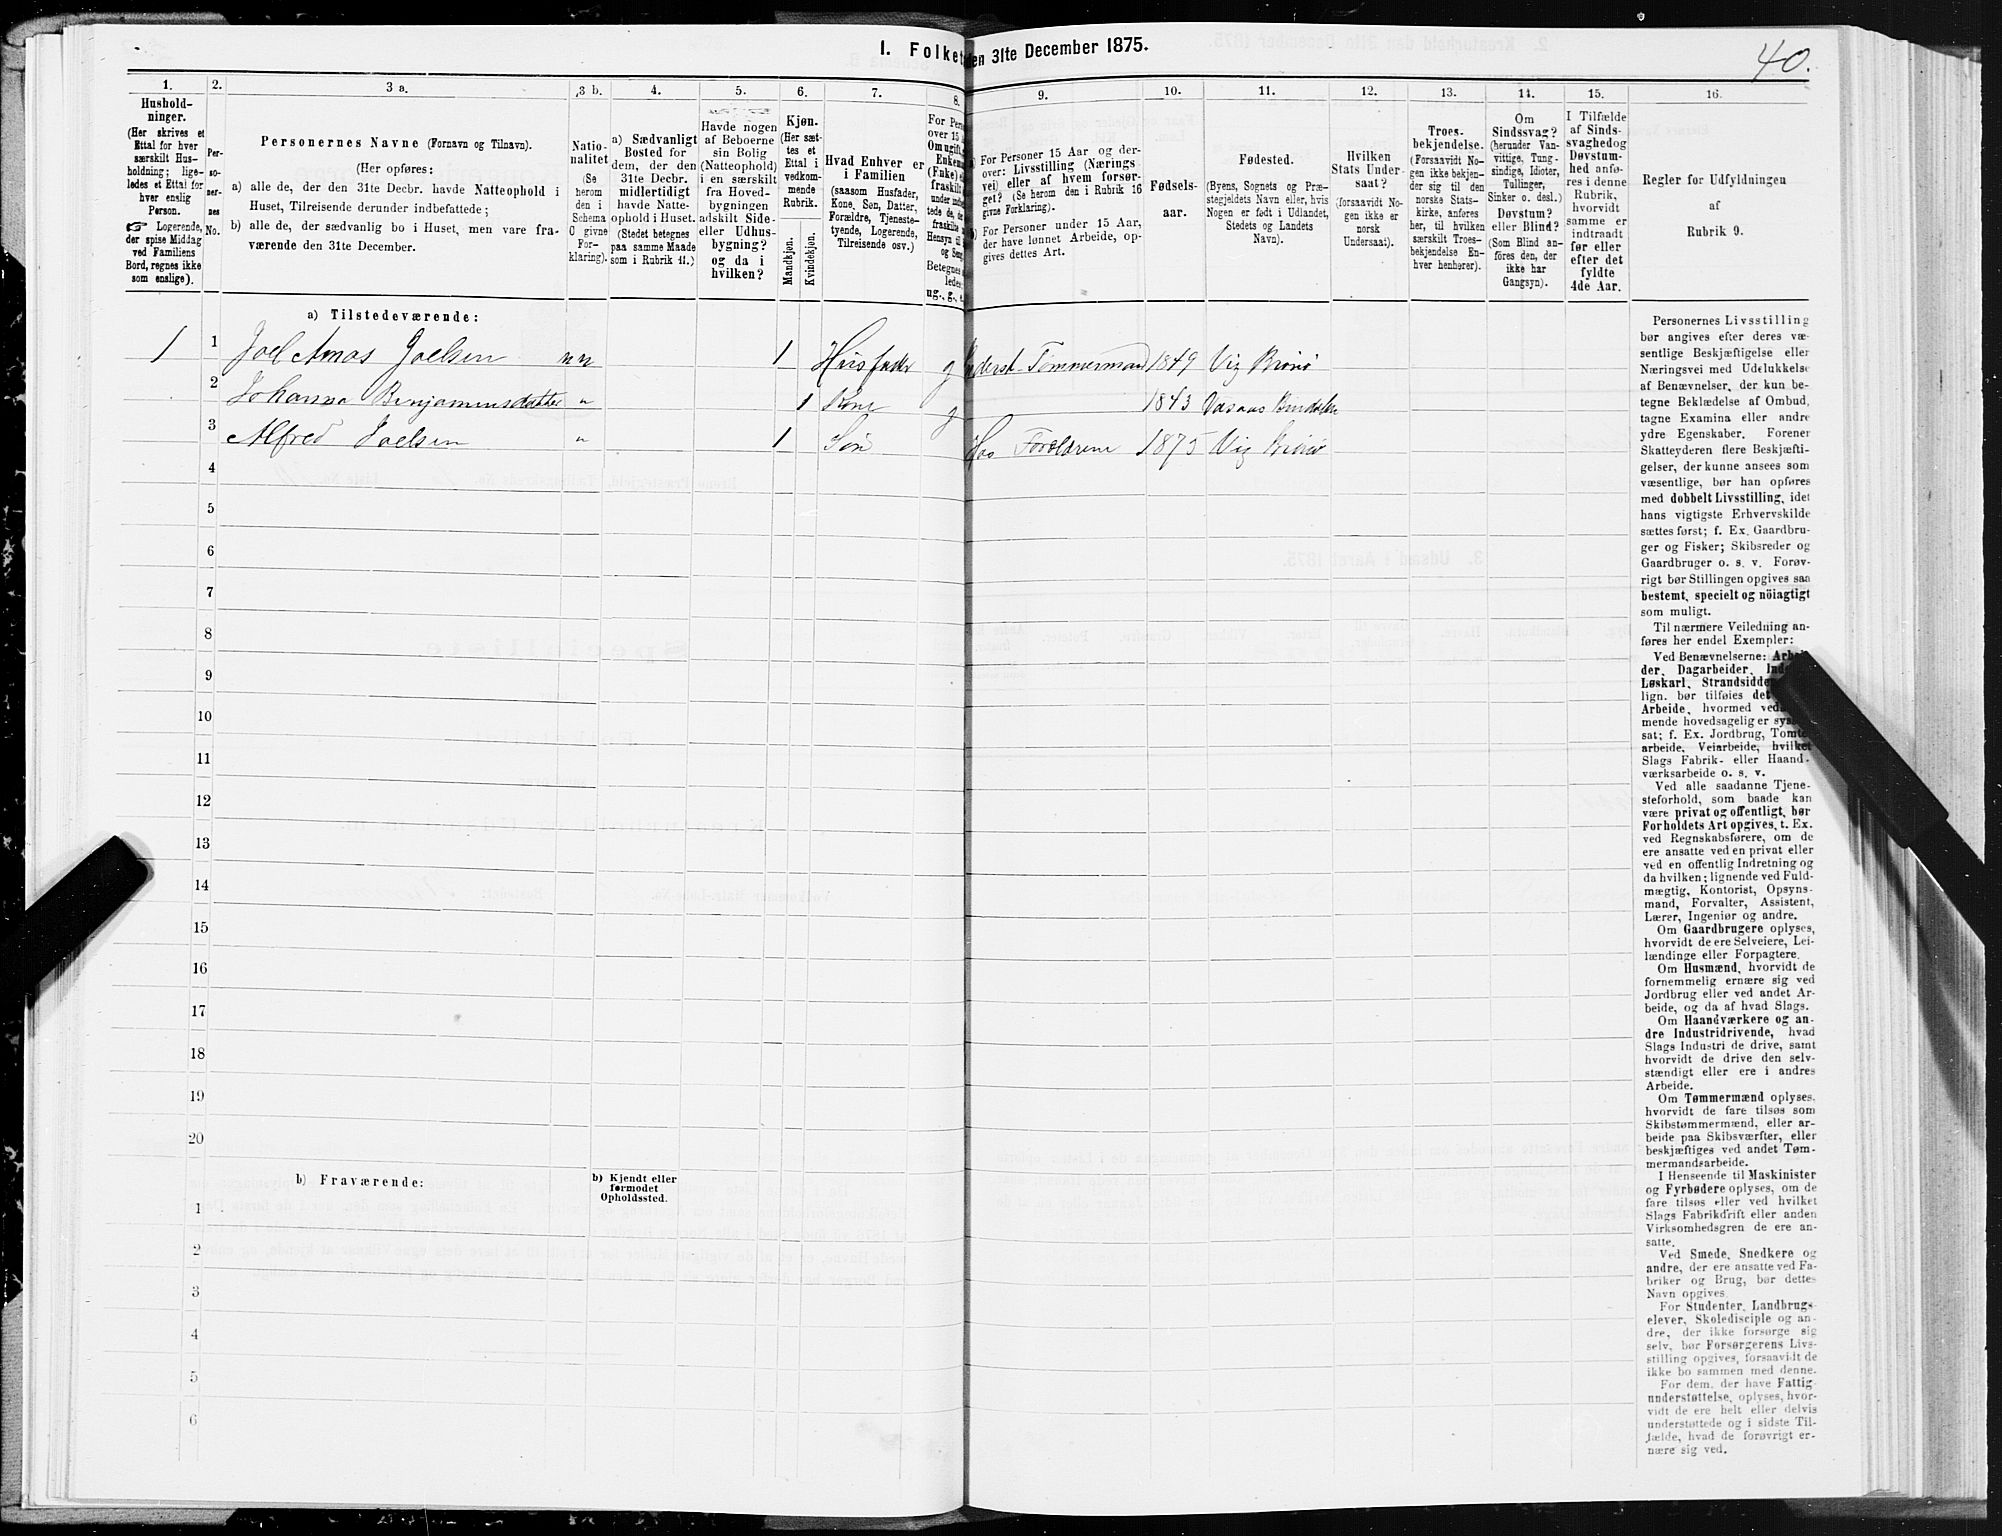 I. Folket
den 31te December 1875.
40.
1. 2. 3 a. 3 b. 4. 5. 6. 7. 8. 9. 10. 11. 12. 13. 14. 15. 16.
Hushold-
ninger.
(Her skrives et
Ettal for hver
særskilt Hus-
holdning; lige-
ledes et Ettal for
hver enslig
Person.
☞ Logerende,
der spise Middag
ved Familiens
Bord, regnes ikke
som enslige).
Per-
so-
ner-
nes
No.
Personernes Navne (Fornavn og Tilnavn).
(Her opføres:
a) alle de, der den 31te Decbr. havde Natteophold i
Huset, Tilreisende derunder indbefattede;
b) alle de, der sædvanlig bo i Huset, men vare fra-
værende den 31te December.
Natio-
nalitet
(Se
herom
den i
Schema
C givne
For-
klaring).
a) Sædvanligt
Bosted for
dem, der den
31te Decbr.
midlertidigt
havde Natte-
ophold i Huset.
(Stedet betegnes
paa samme Maade
som i Rubrik 11.)
Havde nogen
af Beboerne
sin Bolig
(Natteophold)
i en særskilt
fra Hoved-
bygningen
adskilt Side-
eller Udhus-
bygning?
og da i
hvilken?
Kjøn.
(Her sæt-
tes et
Ettal i
vedkom-
mende
Rubrik.
Mandkjøn.
Kvindekjøn.
Hvad Enhver er
i Familien
(saasom Husfader,
Kone, Søn, Datter,
Forældre, Tjeneste-
tyende, Logerende,
Tilreisende osv.)
For Pers
over 15 A
Om ugift,
Enkem
(Enke) e
fraskilt
under indb
tede de, de
fraskilte
Hensyn til
og Seng
Betegnes
ledes:
ug., g., e.,
a) For Personer 15 Aar og der-
over: Livsstilling (Nærings
vei) eller af hvem forsør-
get? (Se herom den i Rubrik 16
givne Forklaring).
b) For Personer under 15 Aar,
der have lønnet Arbeide, op-
gives dettes Art.
Fødsels-
aar.
Fødested.
(Byens, Sognets og Præ-
stegjeldets Navn eller, hvis
Nogen er født i Udlandet,
Stedets og Landets
Navn).
Hvilken
Stats Under-
saat?
(forsaavidt No-
gen ikke er
norsk
Undersaat).
Troes-
bekjendelse.
(Forsaavidt No-
gen ikke bekjen-
der sig til den
norske Stats-
kirke, anføres
her, til hvilken
særskilt Troes-
bekjendelse En-
hver henhører).
Om
Sindssvag?
(herunder Van-
vittige, Tung-
sindige, Idioter,
Tullinger,
Sinker o. desl.)
Døvstum?
eller Blind?
(Som Blind an-
föres den, der
ikke har
Gangsyn).
I Tilfælde
af Sinds-
svaghed og
Døvstum-
hed anfø-
res i denne
Rubrik,
hvorvidt
samme er
indtraadt
før eller
efter det
fyldte
4de Aar.
Regler for Udfyldningen
af
Rubrik 9.
a) Tilstedeværende:
1 1 Joel Amos Joelsen nn 1 Husfader g Tømmermand 1849 Vig Brønø
2 Johanna Benjaminsdatter " 1 Kone g 1843 Bindalen
3 Alfred Joelsen " 1 Søn Hos Forældrene 1875 Vig Brønø
4
5
6
7
8
9
10
11
12
13
14
15
16
17
18
19
20
b) Fraværende:
b) Kjendt eller
formodet
Opholdssted.
1
2
3
4
5
6
Personernes Livsstilling
bør angives efter deres væ-
sentlige Beskjæftigelse eller
Næringsvei med Udelukkelse
af Benævnelser, der kun be-
tegne Beklædelse af Ombud,
tagne Examina eller andre
ydre Egenskaber. Forener
Skatteyderen flere Beskjæfti-
gelser, der kunne ansees som
væsentlige, bør han opføres
med dobbelt Livsstilling, idet
hans vigtigste Erhvervskilde
sættes først; f. Ex. Gaardbru-
ger og Fisker; Skibsreder og
Gaardbruger o. s. v. Forøv-
rigt bør Stillingen opgives saa
bestemt, specielt og nöiagtigt
som muligt.
Til nærmere Veiledning an-
føres her endel Exempler:
Ved Benævnelserne: Arbei-
der, Dagarbeider, Inde
Løskarl, Strandsidder
lign. bør tilføies det
Arbeide, hvormed ved
mende hovedsagelig er sys
sat; f. Ex. Jordbrug, Tomte-
arbeide, Veiarbeide, hvilket
Slags Fabrik- eller Haand-
værksarbeide o. s. v.
Ved alle saadanne Tjene-
steforhold, som baade kan
være privat og offentligt, bør
Forholdets Art opgives, t. Ex.
ved Regnskabsførere, om de
ere ansatte ved en privat eller
ved en offentlig Indretning og
da hvilken; lignende ved Fuld-
mægtig, Kontorist, Opsyns-
mand, Forvalter, Assistent,
Lærer, Ingeniør og andre.
Om Gaardbrugere oplyses,
hvorvidt de ere Selveiere, Lei-
lændinge eller Forpagtere.
Om Husmænd, hvorvidt de
fornemmelig ernære sig ved
Jordbrug eller ved andet Ar-
beide, og da af hvad Slags.
Om Haandværkere og an-
dre Industridrivende, hvad
Slags Industri de drive, samt
hvorvidt de drive den selv-
stændigt eller ere i andres
Arbeide.
Om Tømmermænd oplyses,
hvorvidt de fare tilsøs som
Skibstømmermænd, eller ar-
beide paa Skibsværfter, eller
beskjæftiges ved andet Tøm-
mermandsarbeide.
I Henseende til Maskinister
og Fyrbødere oplyses, om de
fare tilsøs eller ved hvilket
Slags Fabrikdrift eller anden
Virksomhedsgren de ere an-
satte.
Ved Smede, Snedkere og
andre, der ere ansatte ved Fa-
briker og Brug, bør dettes
Navn opgives.
For Studenter, Landbrugs-
elever, Skoledisciple og an-
dre, der ikke forsørge sig
selv, bør Forsørgerens Livs-
stilling opgives, forsaavidt de
ikke bo sammen med denne.
For dem, der have Fattig-
understøttelse, oplyses, hvor-
vidt de ere helt eller delvis
understøttede og i sidste Til-
fælde, hvad de forøvrigt er-
nære sig ved.